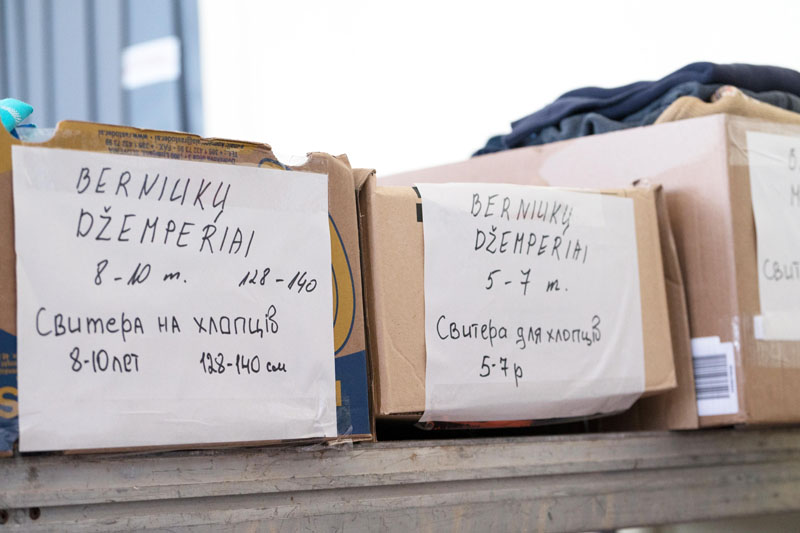 BERNIUKŲ
DŽEMPERIAI
8-10 m. 128-140
Свитера на хлопців
8-10лет 128-140 см
BERNIUKŲ
DŽEMPERIAI
5-7 m.
Свитера для хлопців
5-7р